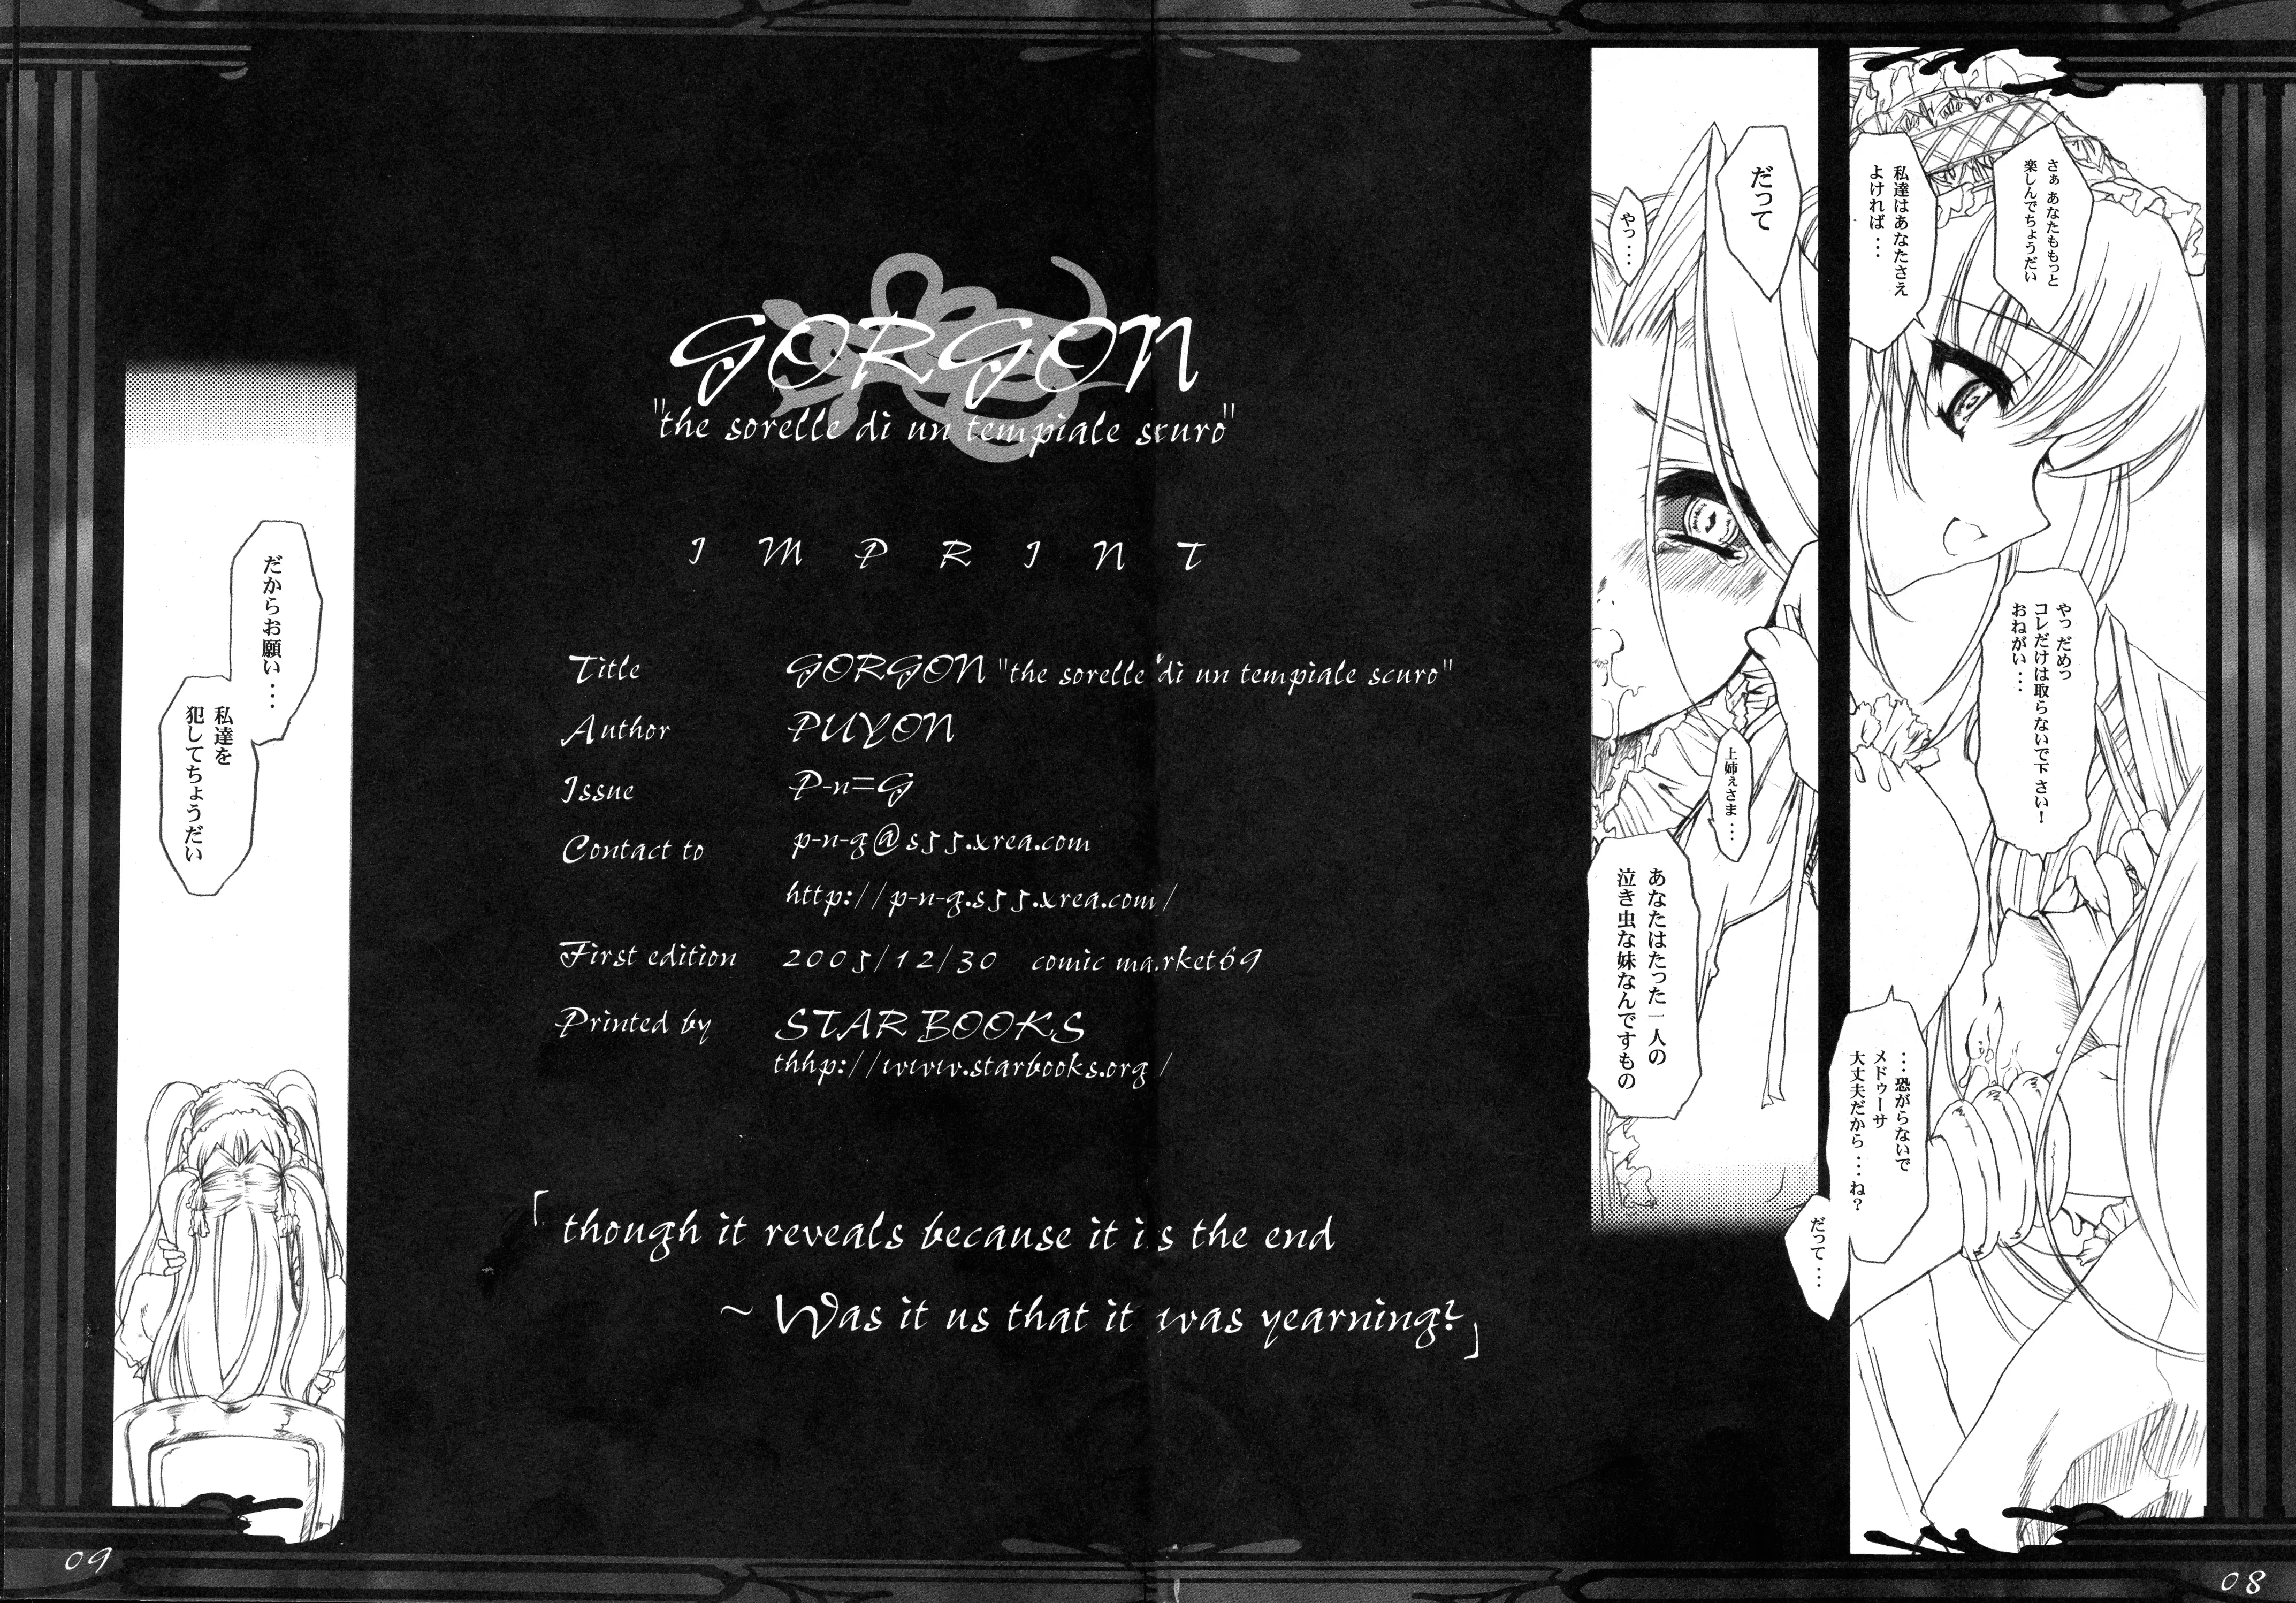 さぁ あなたももっと
楽しんでちょうだい
私達はあなたさえ
よければ・・
やっ だめっ
コレだけは取らないで下さい!
おねがい・・・
・・・恐がらないで
メドゥーサ
大丈夫だから・・・ね?
だって・・・
だって
やっ・・・
上姉ぇさま・・・
あなたはたった一人の
泣き虫な妹なんですもの
GORGON
"the sorelle di un tempiale scuro"
IMPRINT
Title GORGON "the sorelle di un tempiale scuro"
Author PUYON
Issue P-n=G
Contact to p-n-g@s55.xrea.com
http://p-n-g.s55.xrea.com/
First edition 2005/12/30 comic market69
Printed by STAR BOOKS
thhp://www.starbooks.org/
「though it reveals because it is the end
~ Was it us that it was yearning?」
だからお願い・・・
私達を
犯してちょうだい
09
08